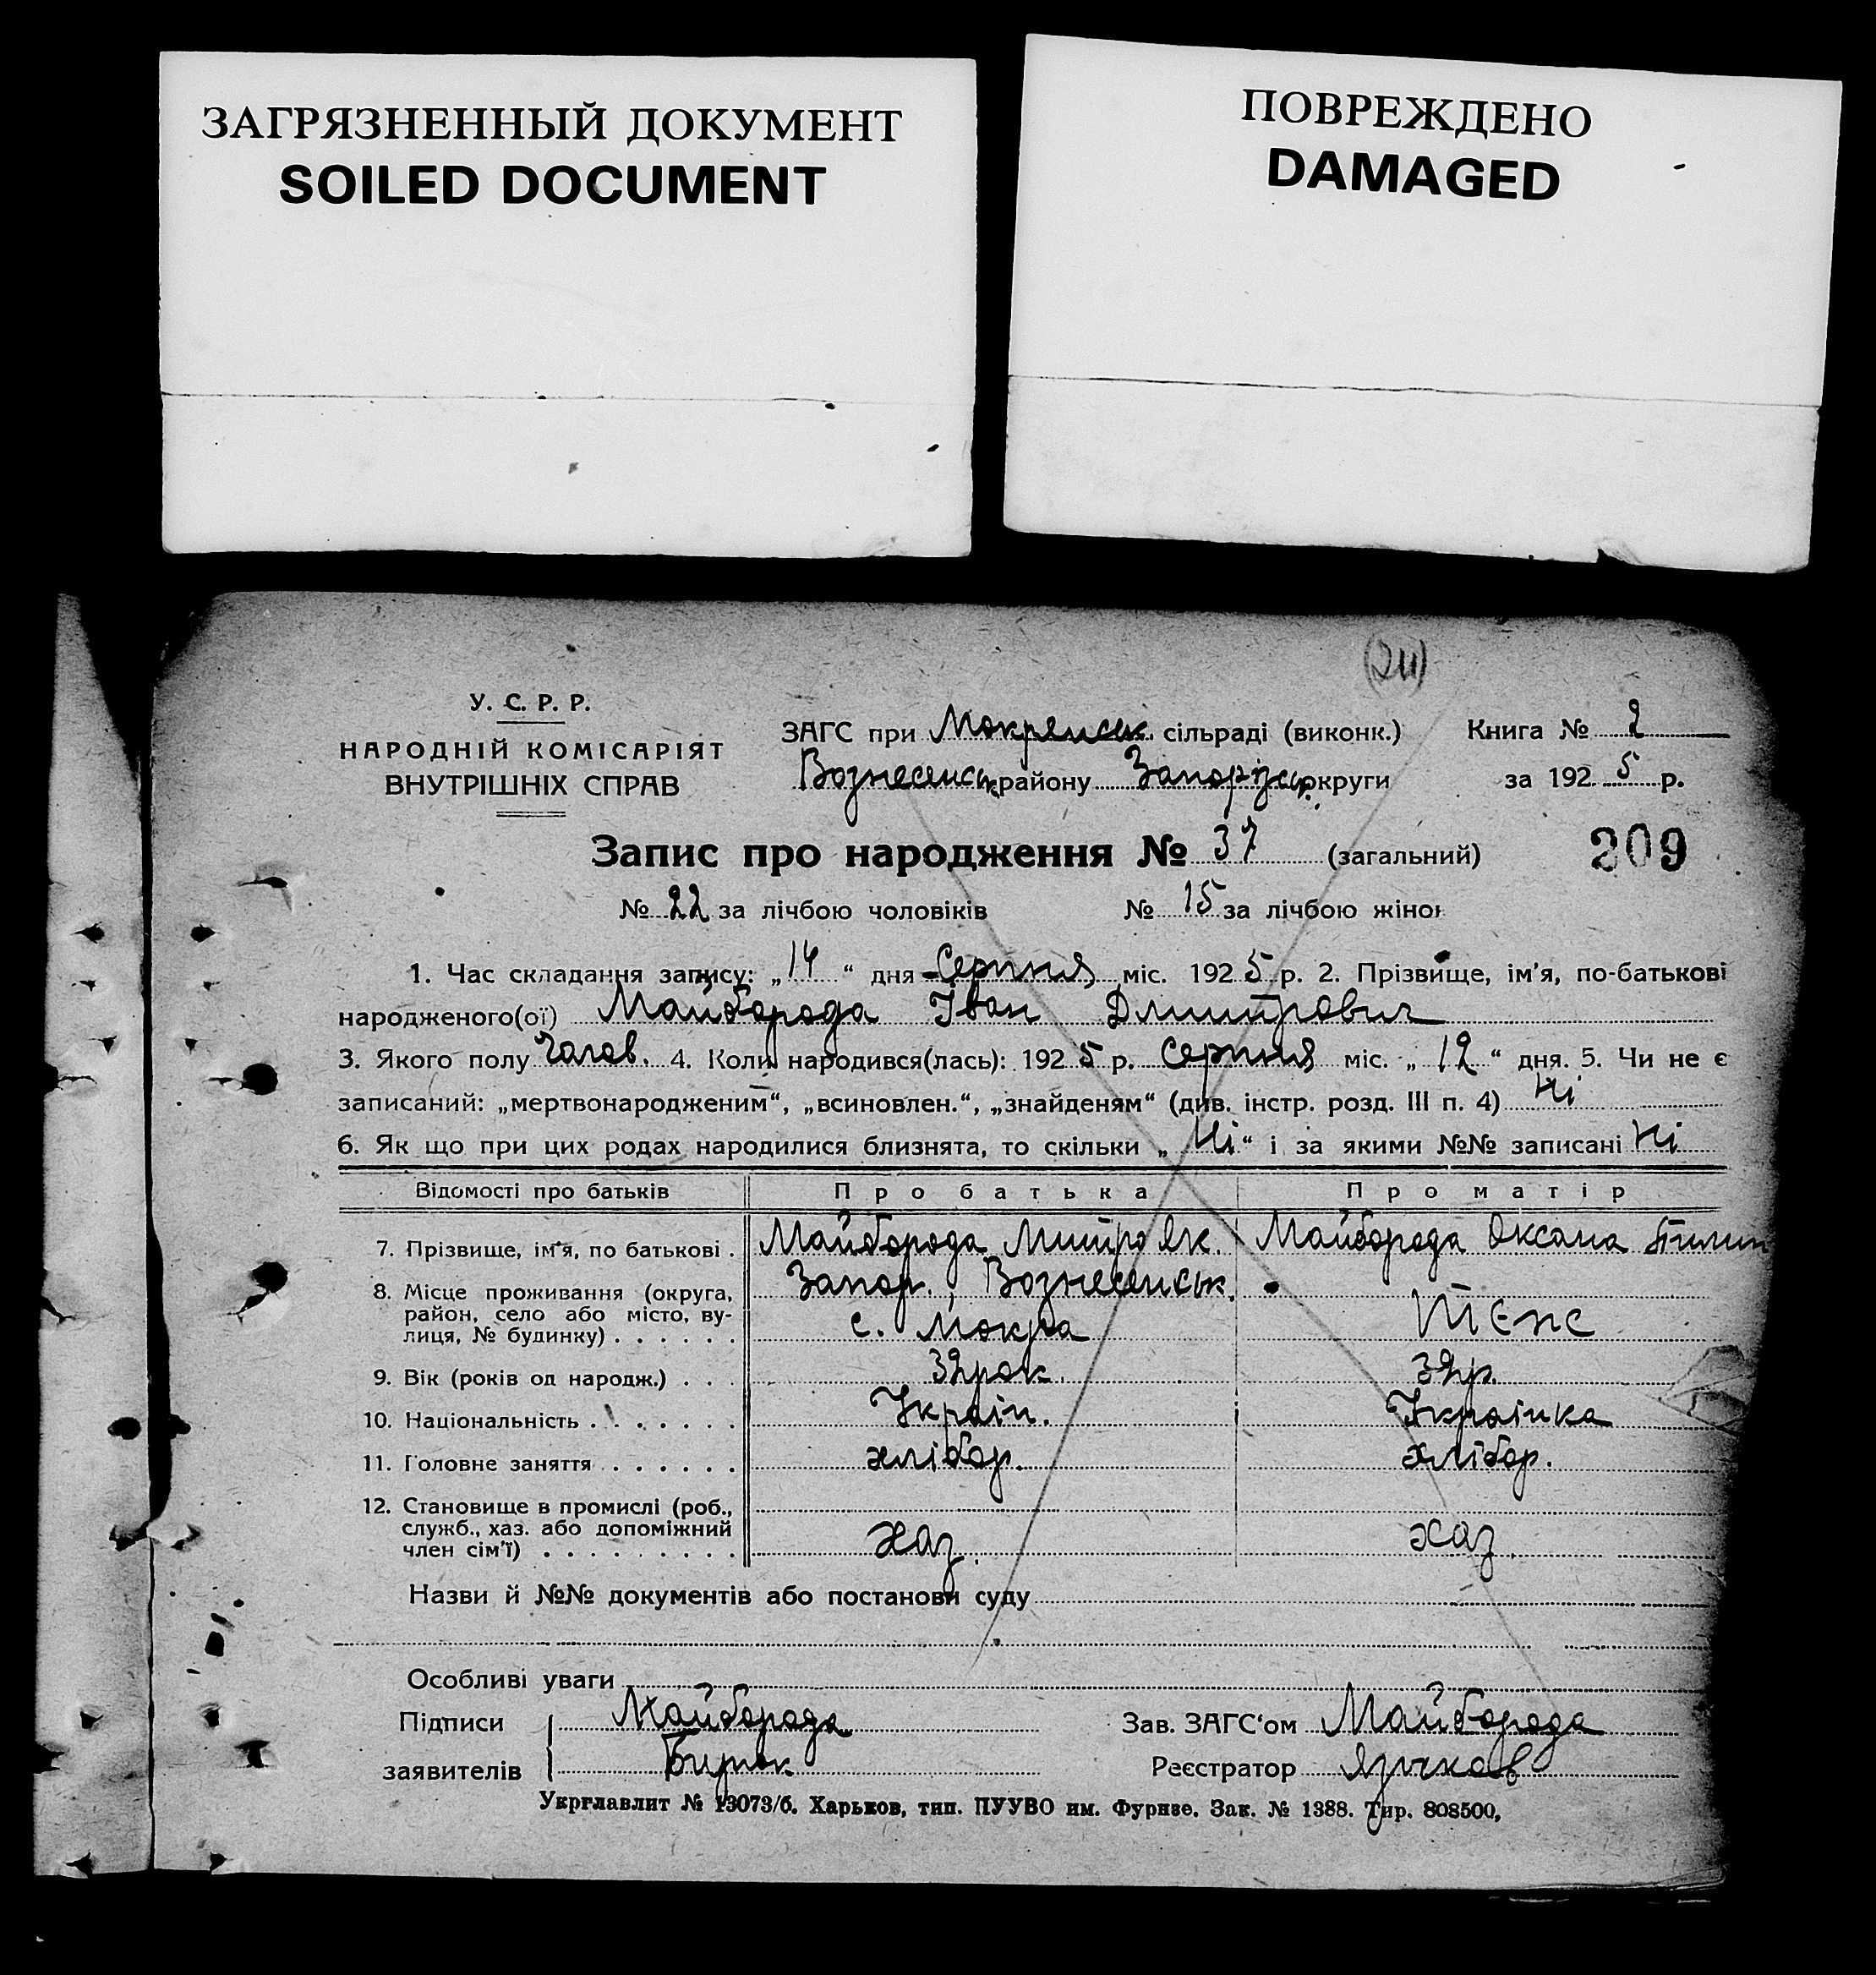 ЗАГРЯЗНЕННЫЙ ДОКУМЕНТ
SOILED DOCUMENT
ПОВРЕЖДЕНО
DAMAGED
У. С. Р. Р.
НАРОДНІЙ КОМІСАРІЯТ
ВНУТРІШНІХ СПРАВ
ЗАГС при Мокрянськ. сільраді (виконк.) Книга № 2
Вознесенськ. району Запорізьк. округи за 1925 р.
Запис про народження № 37 (загальний) 209
№ 22 за лічбою чоловіків № 15 за лічбою жінок
1. Час складання запису: „14“ дня Серпня міс. 1925 р. 2. Прізвище, ім'я, по-батькові
народженого(ої) Майборода Іван Дмитрович
3. Якого полу Чолов. 4. Коли народився(лась): 1925 р. Серпня міс. „12“ дня. 5. Чи не є
записаний: „мертвонародженим“, „всиновлен.“, „знайденям“ (див. інстр. розд. III п. 4) Ні
6. Як що при цих родах народилися близнята, то скільки „Ні“ і за якими №№ записані Ні
Відомості про батьків Про батька Про матір
7. Прізвище, ім'я, по батькові . Майборода Митро Як. Майборода Оксана Пилип
8. Місце проживання (округа, район, село або місто, вулиця, № будинку) . . . . . . Запор., Вознесенськ.
с. Мокра теж
9. Вік (років од народж.) . . . 32 рок. 32 р.
10. Національність . . . . . . . Україн. Українка
11. Головне заняття . . . . . . хлібор. хлібор.
12. Становище в промислі (роб.,
служб., хаз. або допоміжний
член сім'ї) . . . . . . . . . хаз. хаз.
Назви й №№ документів або постанови суду
Особливі уваги
Підписи Майборода Зав. ЗАГС'ом Майборода
заявителів Бирюк Реєстратор Язичков
Укрглавлит № 13073/б. Харьков, тип. ПУУВО им. Фрунзе. Зак. № 1388. Тир. 808500,